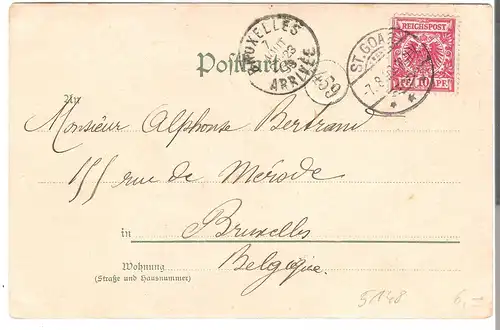 BRUXELLES
7
AOUT
ARRIVÉE
Postkarte
459
ST. GOAR
REICHSPOST
PF
An
Monsieur Alphonse Bertrand
155 rue de Mérode
in Bruxelles
Wohnung Belgique.
(Straße und Hausnummer)
6,-